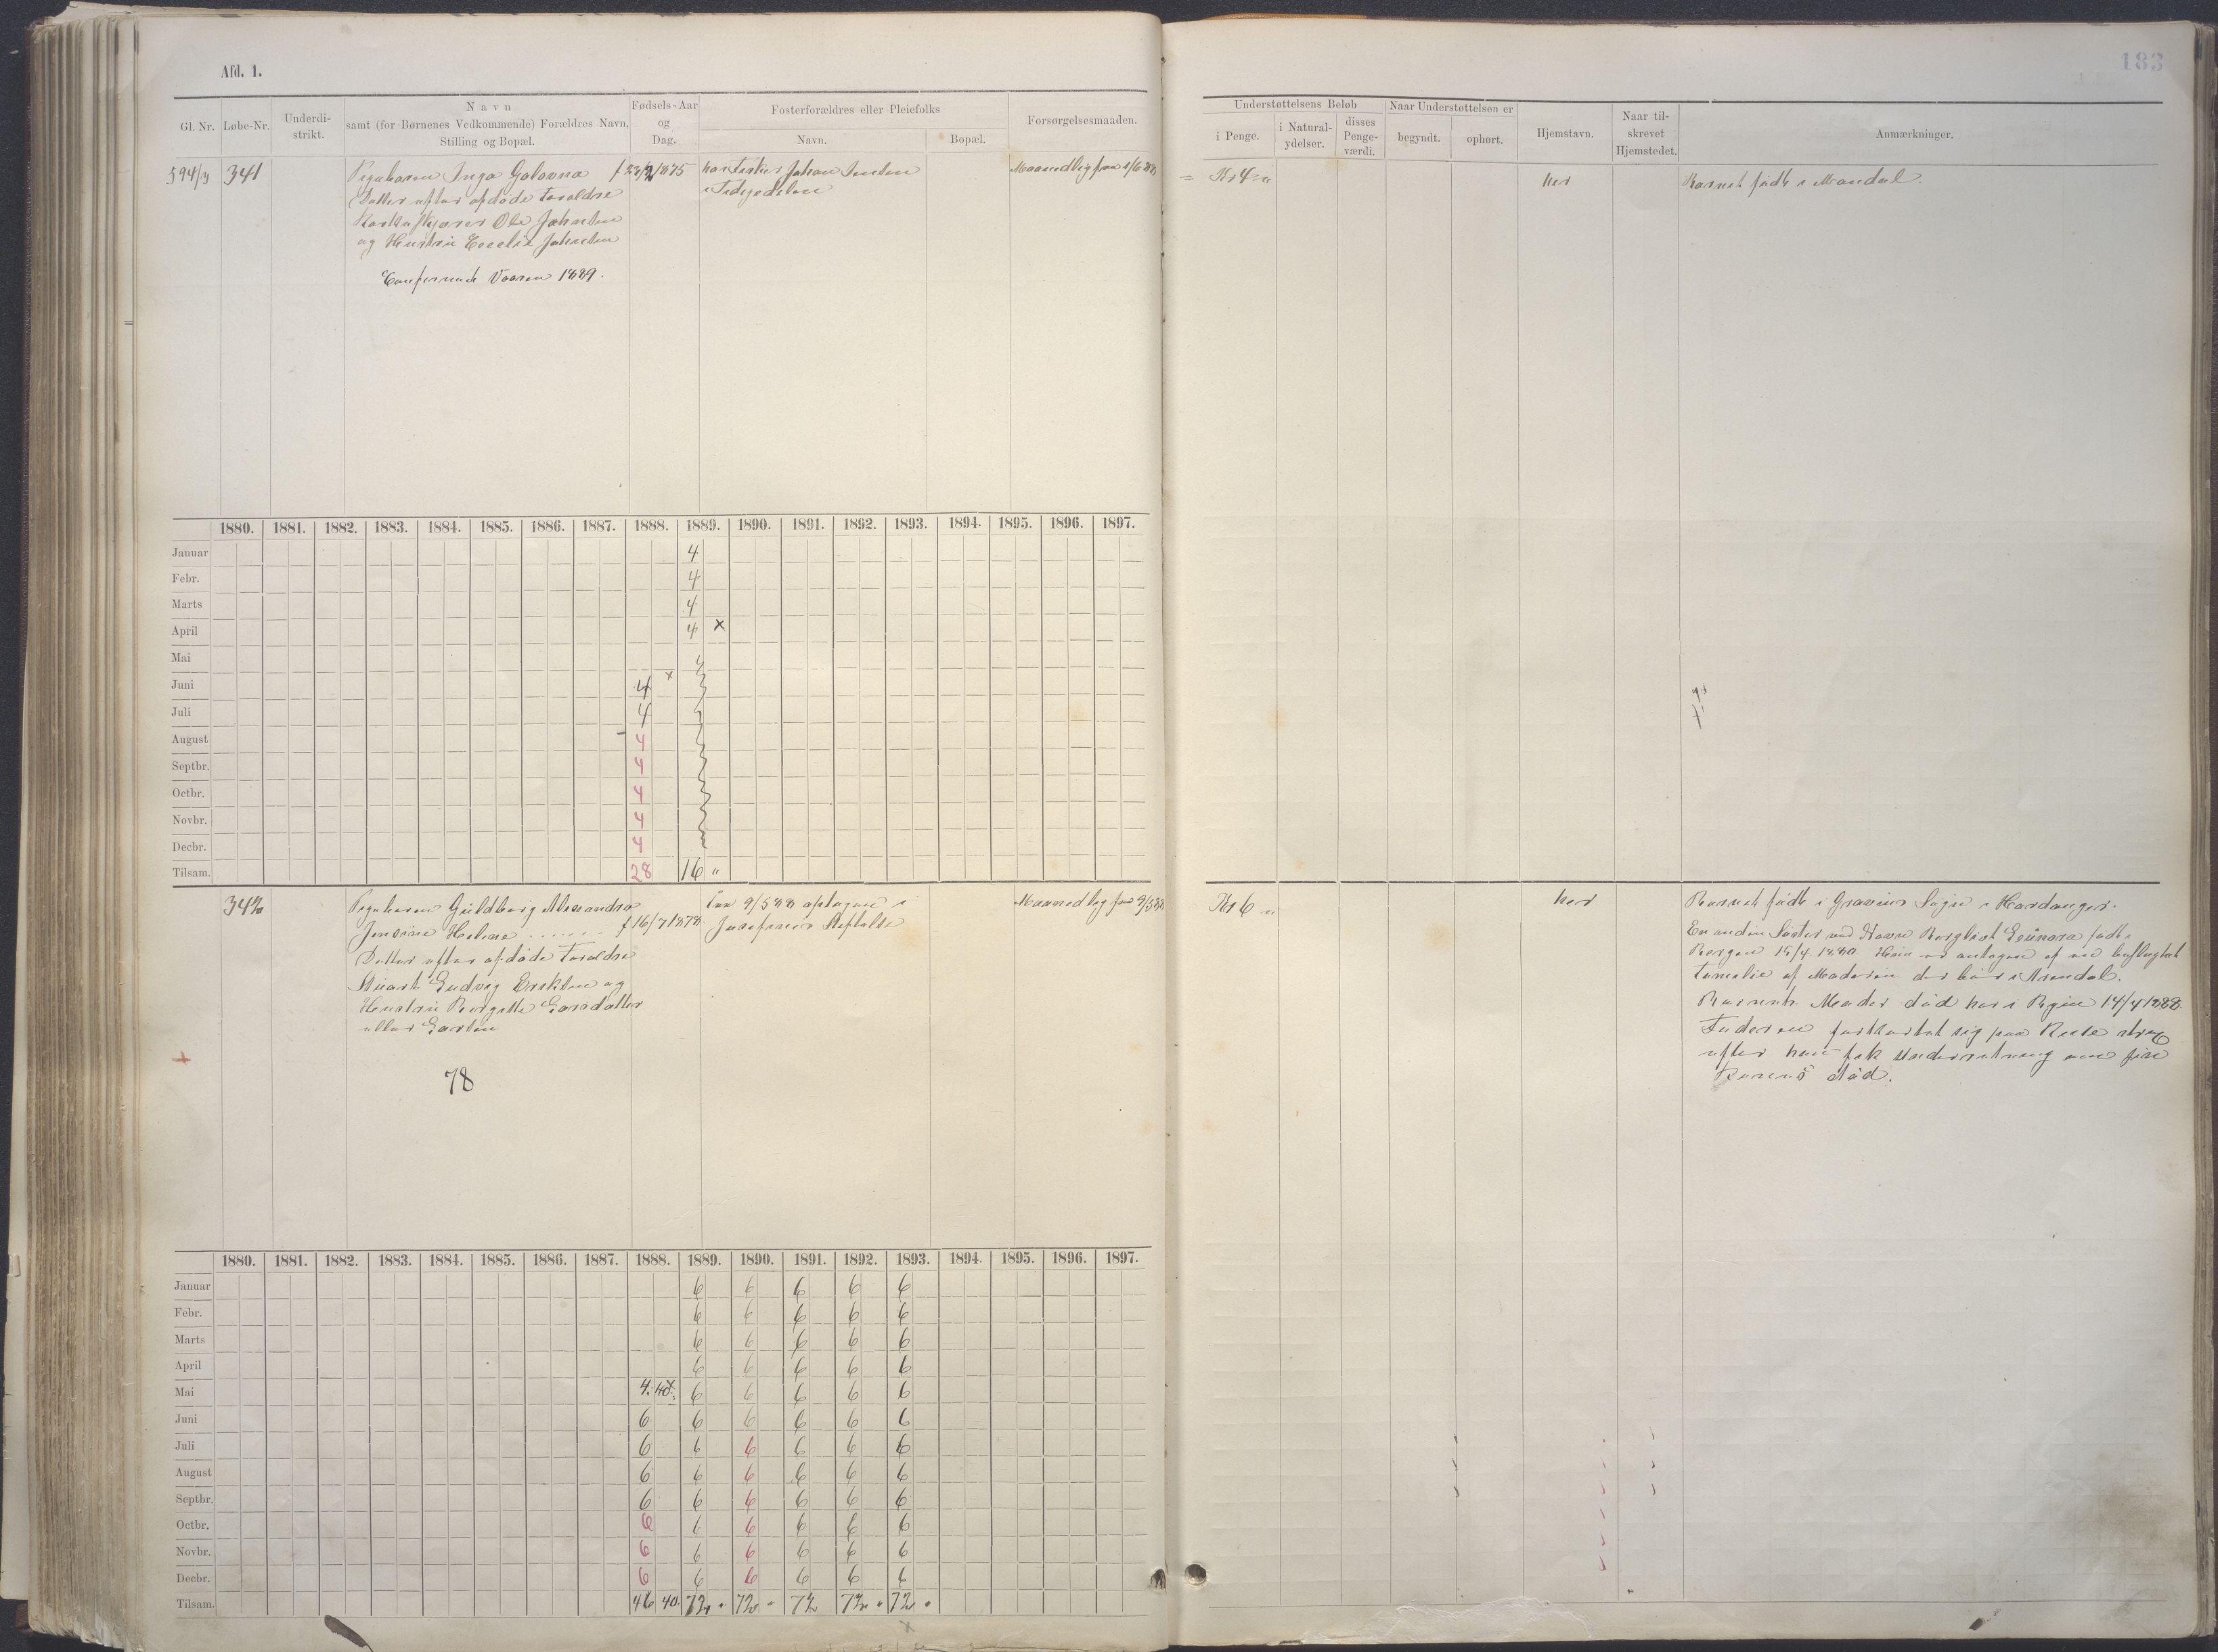 Afd. 1.
183
Gl. Nr.
Løbe-Nr.
Underdi-
strikt.
Navn
samt (for Børnenes Vedkommende) Forældres Navn,
Stilling og Bopæl.
Fødsels-Aar
og
Dag.
Fosterforældres eller Pleiefolks
Navn.
Bopæl.
Forsørgelsesmaaden.
Understøttelsens Beløb
i Penge.
i Natural-
ydelser.
disses
Penge-
værdi.
Naar Understøttelsen er
begyndt.
ophørt.
Hjemstavn.
Naar til-
skrevet
Hjemstedet.
Anmærkninger.
341
Pigebarnet Inga
Datter efter afdøde Forældre
Ole Johnsen
og Hustru Johnsen
Vaaren 1889.
hos Fisker Johan
Maanedlig fra 1/6 88
Kr 4
her
Barnet født i Mandal.
1880. 1881. 1882. 1883. 1884. 1885. 1886. 1887. 1888. 1889. 1890. 1891. 1892. 1893. 1894. 1895. 1896. 1897.
Januar 4
Febr. 4
Marts 4
April 4 x
Mai
Juni 4 x
Juli 4
August 4
Septbr. 4
Octbr. 4
Novbr. 4
Decbr. 4
Tilsam. 28 16 "
342
Pigebarnet Guldborg Alexandra
Jensine Helene f 16/7 1878
Datter efter afdøde Forældre
Ludvig Eriksen og
Hustru Larsdatter
eller Larsen
78
fra 9/5 88 optagen i
Josefines Stiftelse
Maanedlig fra 9/5 88
Kr 6 "
her
Barnet født i Gravens Sogn i Hardanger.
En anden Søster ved Navn født i
Bergen 15/4 Hun er antagen af en
Familie af Moderen der bor i Arendal.
Barnets Moder død her i Byen 14/4 1888.
Faderen sig paa Reise strax
efter han fik Underretning om sin
Konens død.
1880. 1881. 1882. 1883. 1884. 1885. 1886. 1887. 1888. 1889. 1890. 1891. 1892. 1893. 1894. 1895. 1896. 1897.
Januar 6 6 6 6 6
Febr. 6 6 6 6 6
Marts 6 6 6 6 6
April 6 6 6 6 6
Mai 4. 40 6 6 6 6 6
Juni 6 6 6 6 6 6
Juli 6 6 6 6 6 6
August 6 6 6 6 6 6
Septbr. 6 6 6 6 6 6
Octbr. 6 6 6 6 6 6
Novbr. 6 6 6 6 6 6
Decbr. 6 6 6 6 6 6
Tilsam. 46 40 72 " 72 " 72 72 " 72 "